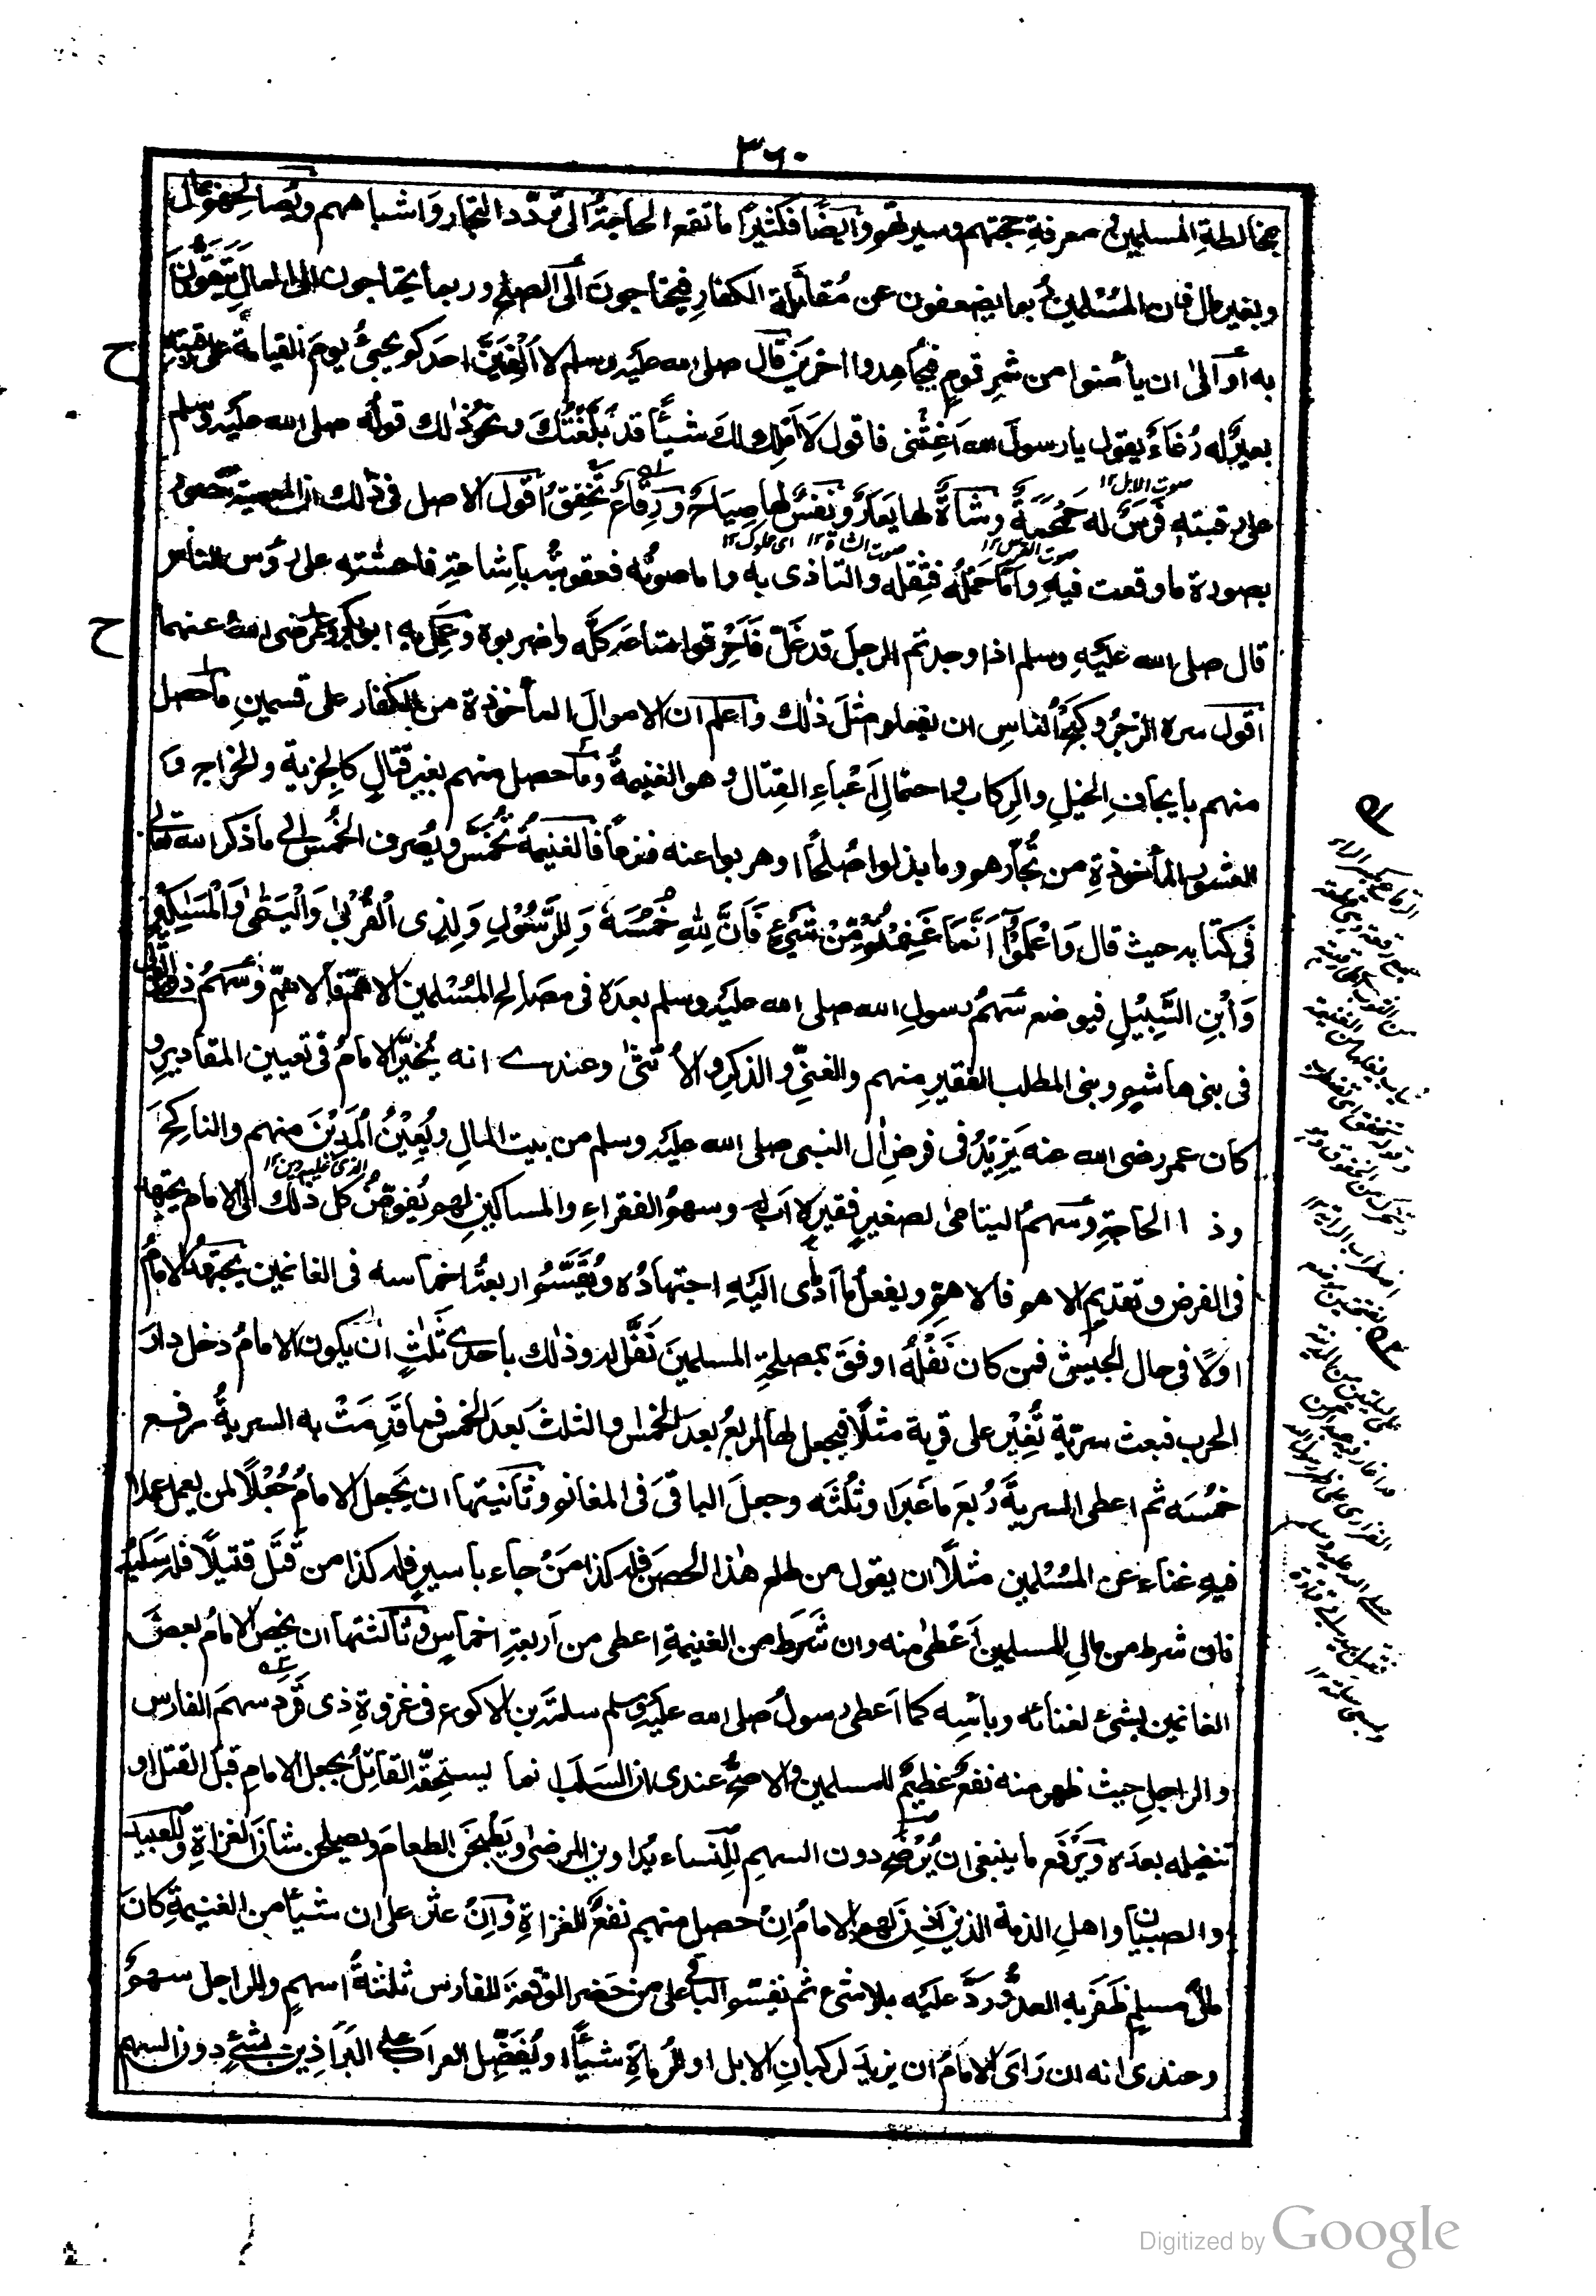 ٣٦٠
بمخالطة المسلمين في معرفة حجتهم وسيرتهم وايضًا فكثيرًا ما تقع الحاجةُ الى تردّد التجار واشباههم ويُصالحهم بمال
وبغير مال فان المسلمين ربما يضعفون عن مُقاتلة الكفارِ فيحتاجونَ الى الصلح وربما يحتاجون الى المالِ يتقوَّون
به او الى ان يأمنوا من شر قومٍ فيجاهدوا اخرين قال صلى الله عليه وسلم لا اُلفِيَنَّ احدكم يجيئُ يومَ القيامة على رقبته
بعيرٌ له رُغاءٌ يقول يا رسولَ الله اَغِثْنى فاقول لا اَملِك لك شيئًا قد بلَّغتُكَ ونحوُ ذٰلك قولُه صلى الله عليه وسلم
صوت الابل ١٢
على رقبته فَرَسٌ له حَمْحَمَةٌ وشاةٌ لها يُعارٌ ونفسٌ لها صِياحٌ ورِقاعٌ تَخفِقُ اقول الاصل في ذٰلك ان المعصية تتصور
صوت الفرس ١٢ صوت الشاة ١٢ اى مملوك ١٢
بصورة ما وقعت فيهِ واَمّا حَملُه فثِقله والتاذى به واما صوتُه فعقوبتُه باِشاعةِ فاحشته على رؤس الناس
قال صلى الله عليه وسلم اذا وجدتم الرجلَ قد غلّ فَاَحْرِقوا متاعَه كلَّه واضربوه وعَمِلَ به ابوبكر وعمر رضى الله عنهما
اقول سره الزجرُ وكَبحُ الناسِ ان يفعلوا مثلَ ذٰلك واعلم ان الاموالَ المأخوذة من الكفار على قسمينِ ما حصل
منهم بايجافِ الخيلِ والرِكاب واحتمالِ اَعْباءِ القِتال وهو الغنيمةُ وما حصل منهم بغير قتالٍ كالجزية والخراج و
العشور المأخوذةِ من تُجّارهم وما بذلوا صُلحًا او هربوا عنه فزعًا فالغنيمةُ تُخمَّسُ ويُصرف الخُمس الى ما ذكر الله تعالى
فى كتابه حيث قال وَاعْلَمُوْٓا اَنَّمَا غَنِمْتُمْ مِّنْ شَىْءٍ فَاَنَّ لِلّٰهِ خُمُسَهٗ وَلِلرَّسُوْلِ وَلِذِى الْقُرْبٰى وَالْيَتٰمٰى وَالْمَسٰكِيْنِ
وَابْنِ السَّبِيْلِ فيوضع سَهمُ رسولِ الله صلى الله عليه وسلم بعدَه فى مصالح المُسْلمين الاهمّ فالاهمِّ وسَهمُ ذوى القربى
فى بنى هاشم وبنى المطلب الفقيرِ منهم والغنىِّ والذكرِ والاُنثىٰ وعندى انه يُخيَّر الامامُ فى تعيين المقادير و
كان عمر رضى الله عنه يَزيدُ فى فرض اٰل النبى صلى الله عليه وسلم من بيت المالِ ويُعِيْنُ الْمَدِيْنَ منهم والناكحَ
الذى عليه دين ١٢
وذا الحاجةِ وسَهمُ اليتامىٰ لصغيرٍ فقيرٍ لا ابَ له وسهمُ الفقراءِ والمساكينِ لهم يُفوَّضُ كل ذلك الى الامام يجتهد
فى الفرض وتقديم الاهم فالاهمِّ ويفعلُ ما اَدّٰى اليه اجتهادُه ويُقَسَّمُ اربعةُ اخماسه فى الغانمين يجتهدُ الامامُ
اولًا فى حال الجيش فمن كان نَفْلُه اوفقَ بمصلحةِ المسلمينَ نَفَّل له وذٰلك باحدى ثَلٰثٍ ان يكون الامامُ دخل دارَ
الحرب فبعث سرِيّة تُغِيْر على قرية مثلًا فيجعل لها الربعُ بعدَ الخمس او الثلثَ بعدَ الخمس فما قَدِمَتْ به السريةُ رفع
خمُسَه ثم اعطى السريةَ رُبعَ ما غبرَ او ثُلُثَه وجعلَ الباقىَ فى المغانم وثانيتها ان يَجعلَ الامامُ جُعْلًا لمن يعمل عملا
فيهِ غناء عن المُسْلمين مثلًا ان يقول من طلع هٰذا الحصنَ فله كذا مَنْ جاء باسيرٍ فله كذا من قَتَل قتيلًا فله سَلَبُه
فان شرط من مالِ المسلمين اَعْطىٰ منه وان شَرَط من الغنيمةِ اعطى من اَربعةِ اخماسٍ وثالثتها ان يخص الامامُ بعضَ
الغانمين بشئ لغنائه وبأسِه كما اَعطى رسولُ صلى الله عليه وسلم سلمة بن الاكوع فى غزوةِ ذى قَرَد سهمَ الفارس
والراجلِ حيث ظهر منه نفعٌ عظيمٌ للمسلمين والاصحُّ عندى ان السلَب انما يستحقّه القاتِلُ بجعل الامامِ قبلَ القتل او
تنفيله بعدَه ويَرْفَع ما ينبغى ان يُرْضَخَ دون السهمِ للنّساء يُداوين المرضىٰ ويَطْبخنَ الطعامَ ويصلحن شانَ الغزاةِ وللعبيد
والصبيان واهلِ الذمة الذين اَذِنَ لهم الامامُ اِنْ حصل منهم نفعٌ للغزاةِ وَاِنْ عثر على ان شيئًا من الغنيمةِ كانَ
مالَ مسلمٍ ظَفرَ به العدوُّ رُدَّ عليه بلا شئ ثم يُقسم الباقى على من حَضر الوقعةَ للفارس ثلثةُ اسهمٍ وللراجل سهمٌ
وعندى انه ان رَاَى الامامُ ان يزيدَ لركبانِ الابل او للرُماةِ شيئًا او يُفَضِّل العراب على البَراذِين بشئ دون السهم
ح
ح
Digitized by Google